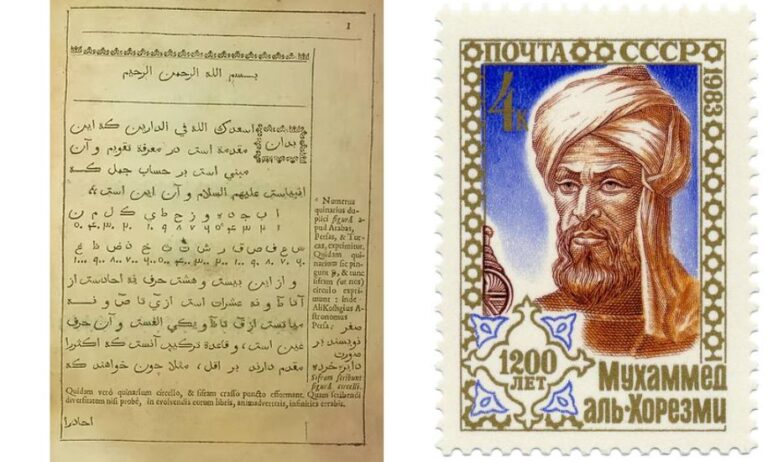 1
بسم الله الرحمن الرحيم
بدان
اسعدك الله في الدارين كه اين
مقدمه است در معرفة تقويم و آن
مبني است بر حساب جمل كه
است عليهم السلام و آن اين است
ا ب ج د ه و ز ح ط ي ك ل م ن
س ع ف ص ق ر ش ت ث خ ذ ض ظ غ
و از اين بيست و هشت حرف نه احادست از
تا و نه عشرات است از ي تا ص و نه
مياتست از ق تا و يكي الفست و آن حرف
غين است ، و قاعده تركيب آنست كه اكثر را
مقدم دارند بر اقل ، مثلا چون خواهند كه
احاد را
Numerus
quinarius du-
plici figurâ a-
pud Arabas,
Persas, & Tur-
cas, exprimitur.
Quidam quin-
narium sic pin-
gunt & tunc
sifram (ut nos)
circulo expri-
munt: inde
Ali Koshgius A-
stronomus
Persa:
صفر
نويسند بر
صورت
دايره خرد
Sifram scribunt
figurâ circelli.
Quidam verò quinarium circello, & sifram crasso puncto efformant. Quam scribendi
diversitatem nisi probè, in evolvendis eorum libris, animadvertatis, infinities errabis.
ПОЧТА СССР
1983
4к
1200
ЛЕТ
Мухаммед
аль-Хорезми